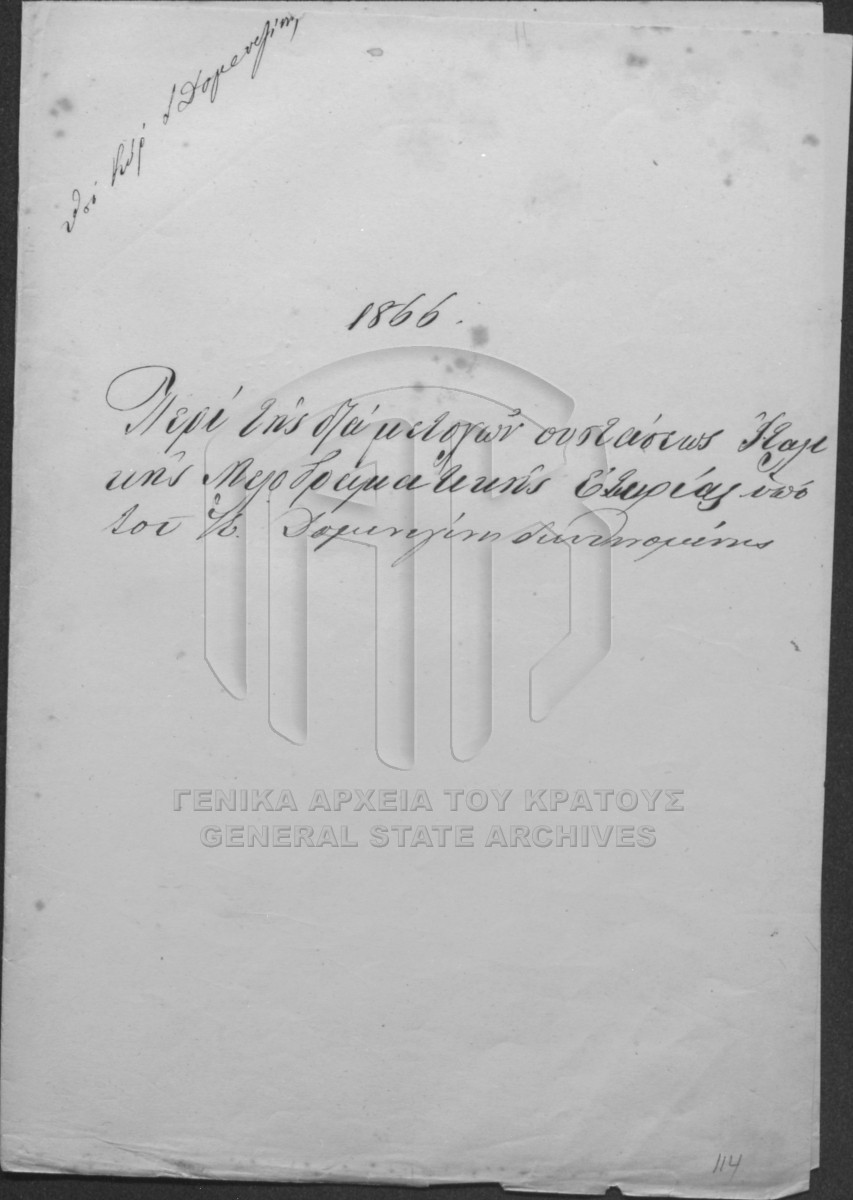 ὑπὸ Κύρ. Δομενεγίνη
1866.
Περὶ τῆς διὰ μετοχῶν συστάσεως Ἰταλι
κῆς Μελοδραματικῆς Ἑταιρίας ὑπὸ
τοῦ Κ. Δομενεγίνη
ΓΕΝΙΚΑ ΑΡΧΕΙΑ ΤΟΥ ΚΡΑΤΟΥΣ
GENERAL STATE ARCHIVES
114